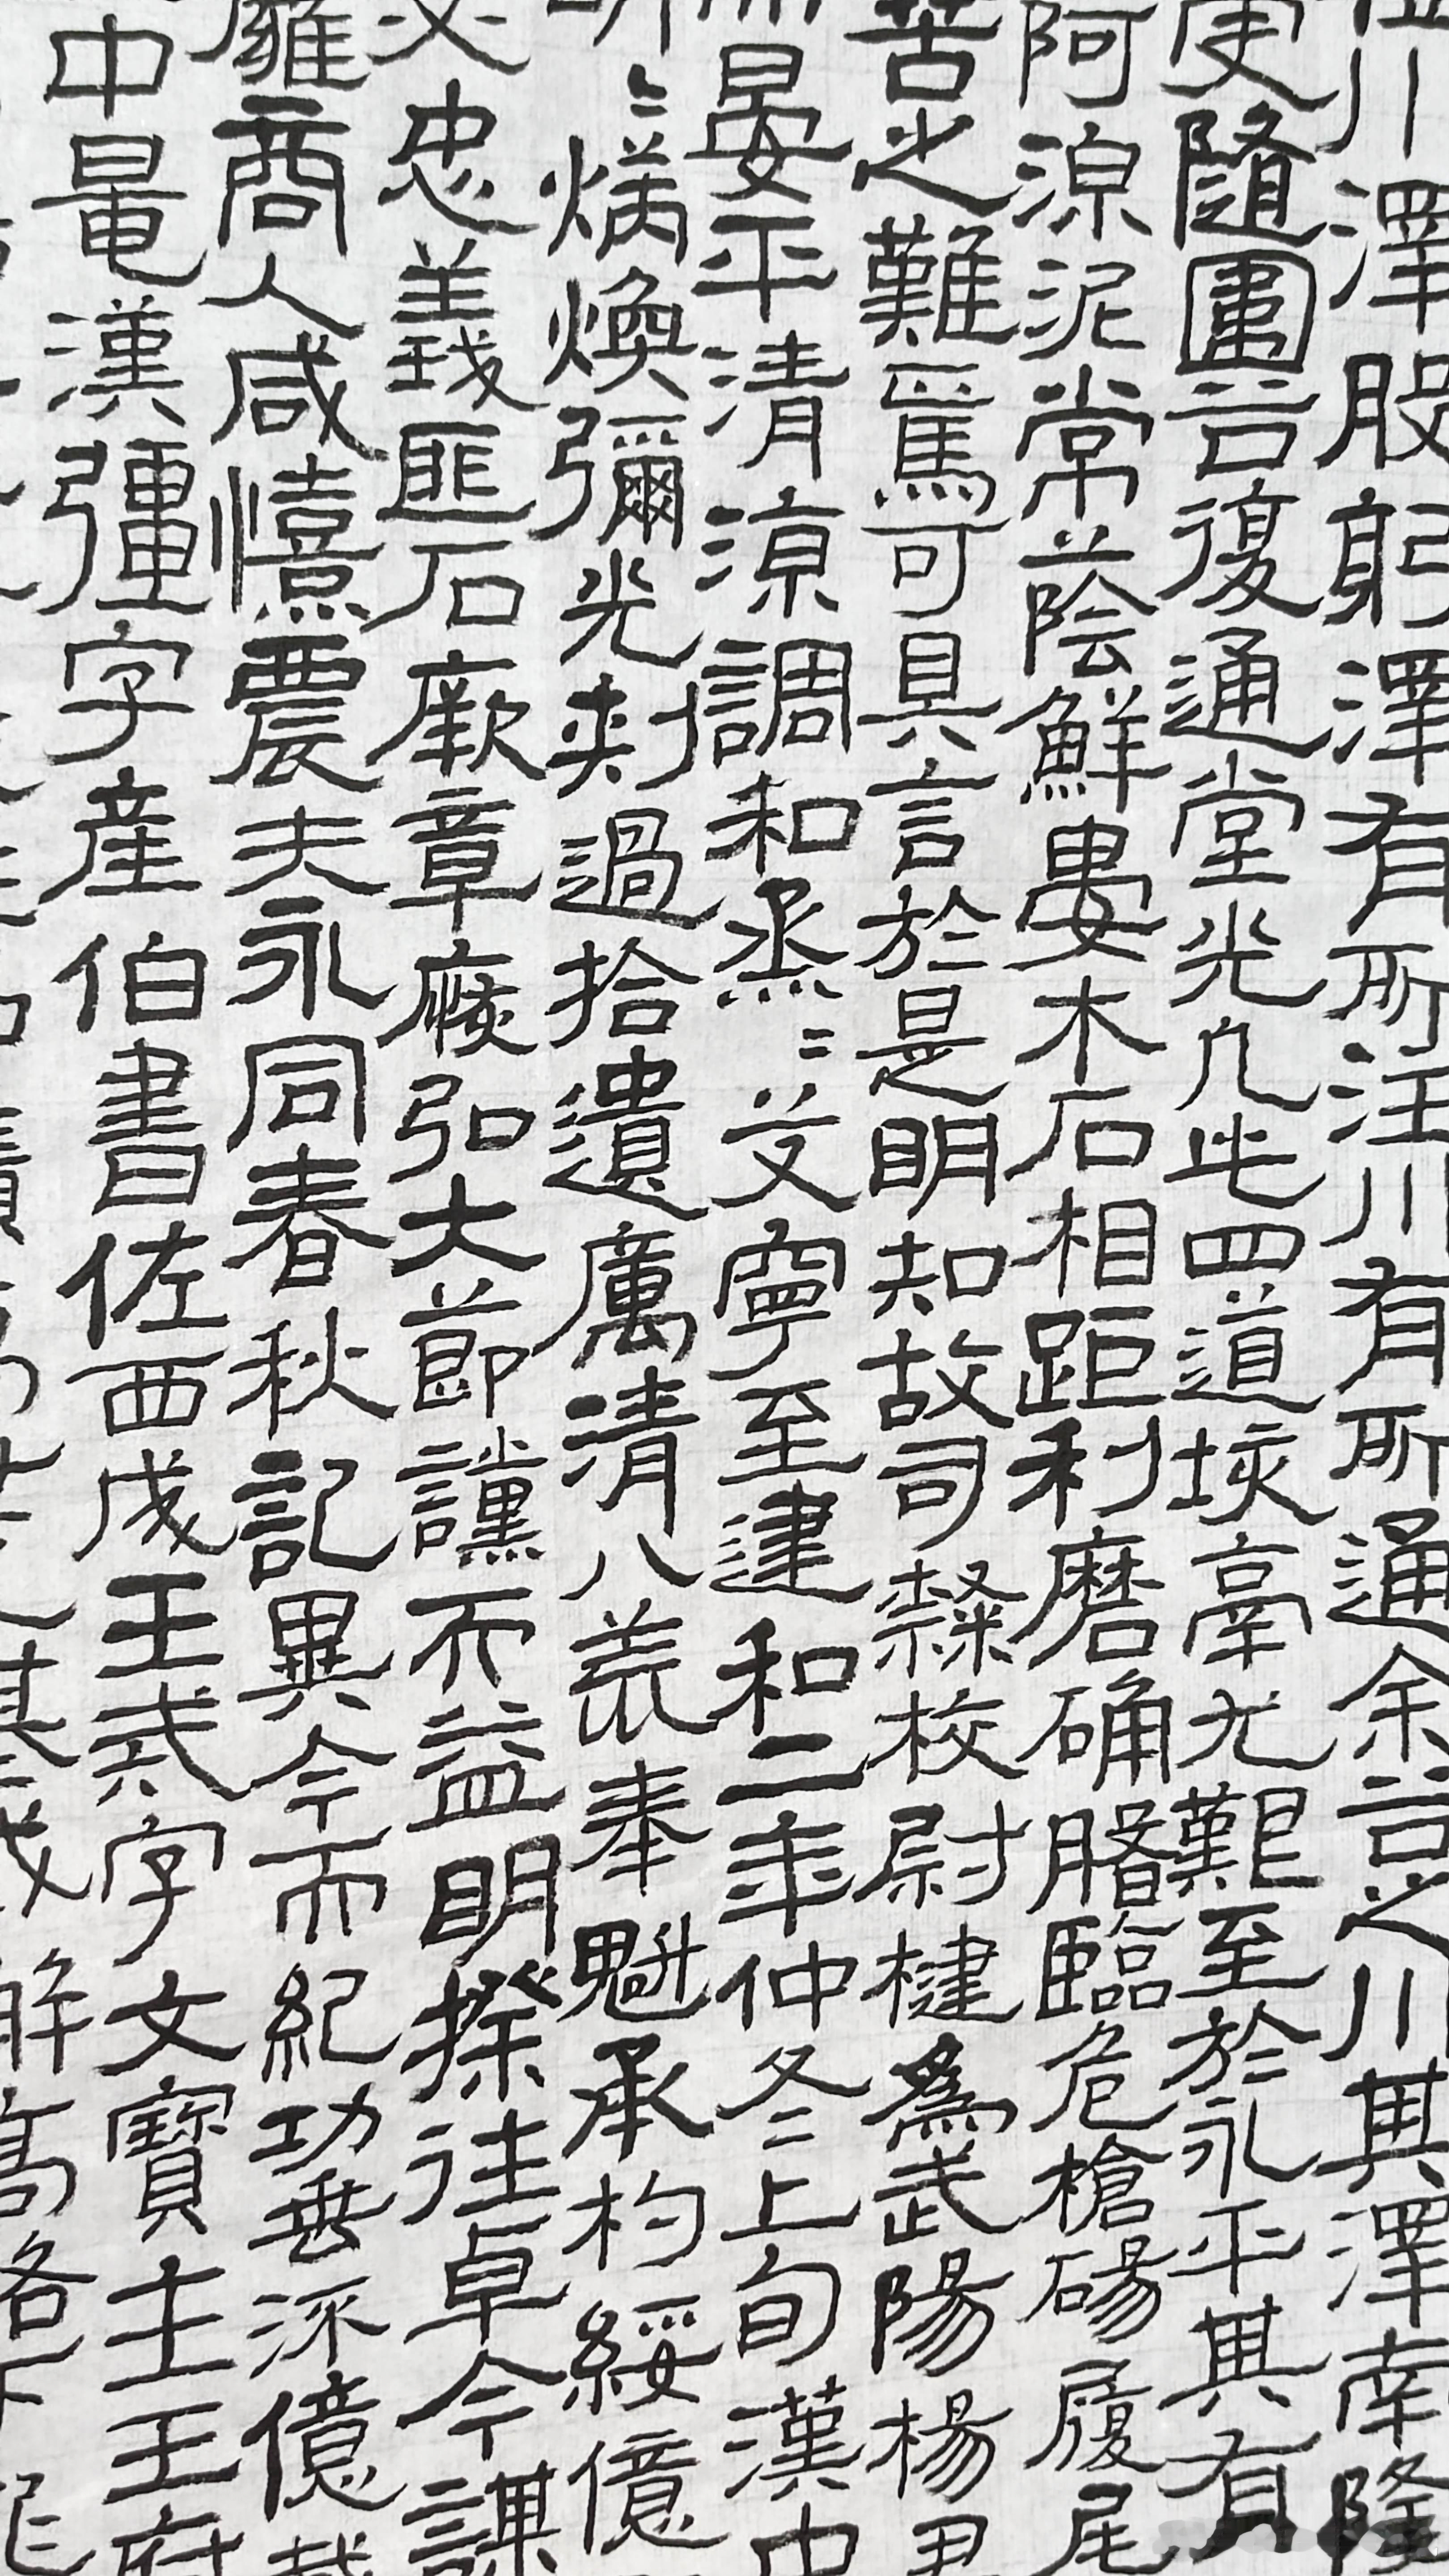 位川澤股躬澤有所注川有所通余谷之川其澤南隆
更隨圍谷復通堂光凡此四道垓鬲尤艱至於永平其有
阿涼泥常蔭鮮晏木石相距利磨确臨危槍碭履尾
苦之難焉可具言於是明知故司隸校尉楗為武陽楊君
而晏平清涼調和烝〻艾寧至建和二年仲冬上旬漢中
明〻炳煥彌光刺過拾遺厲清八荒奉魁承杓綏億
必忠義匪石厥章恢弘大節讜而益明揆往卓今謀
雍商人咸憘農夫永同春秋記異今而紀功垂流億載
中晁漢彊字產伯書佐西成王戒字文寶主王府